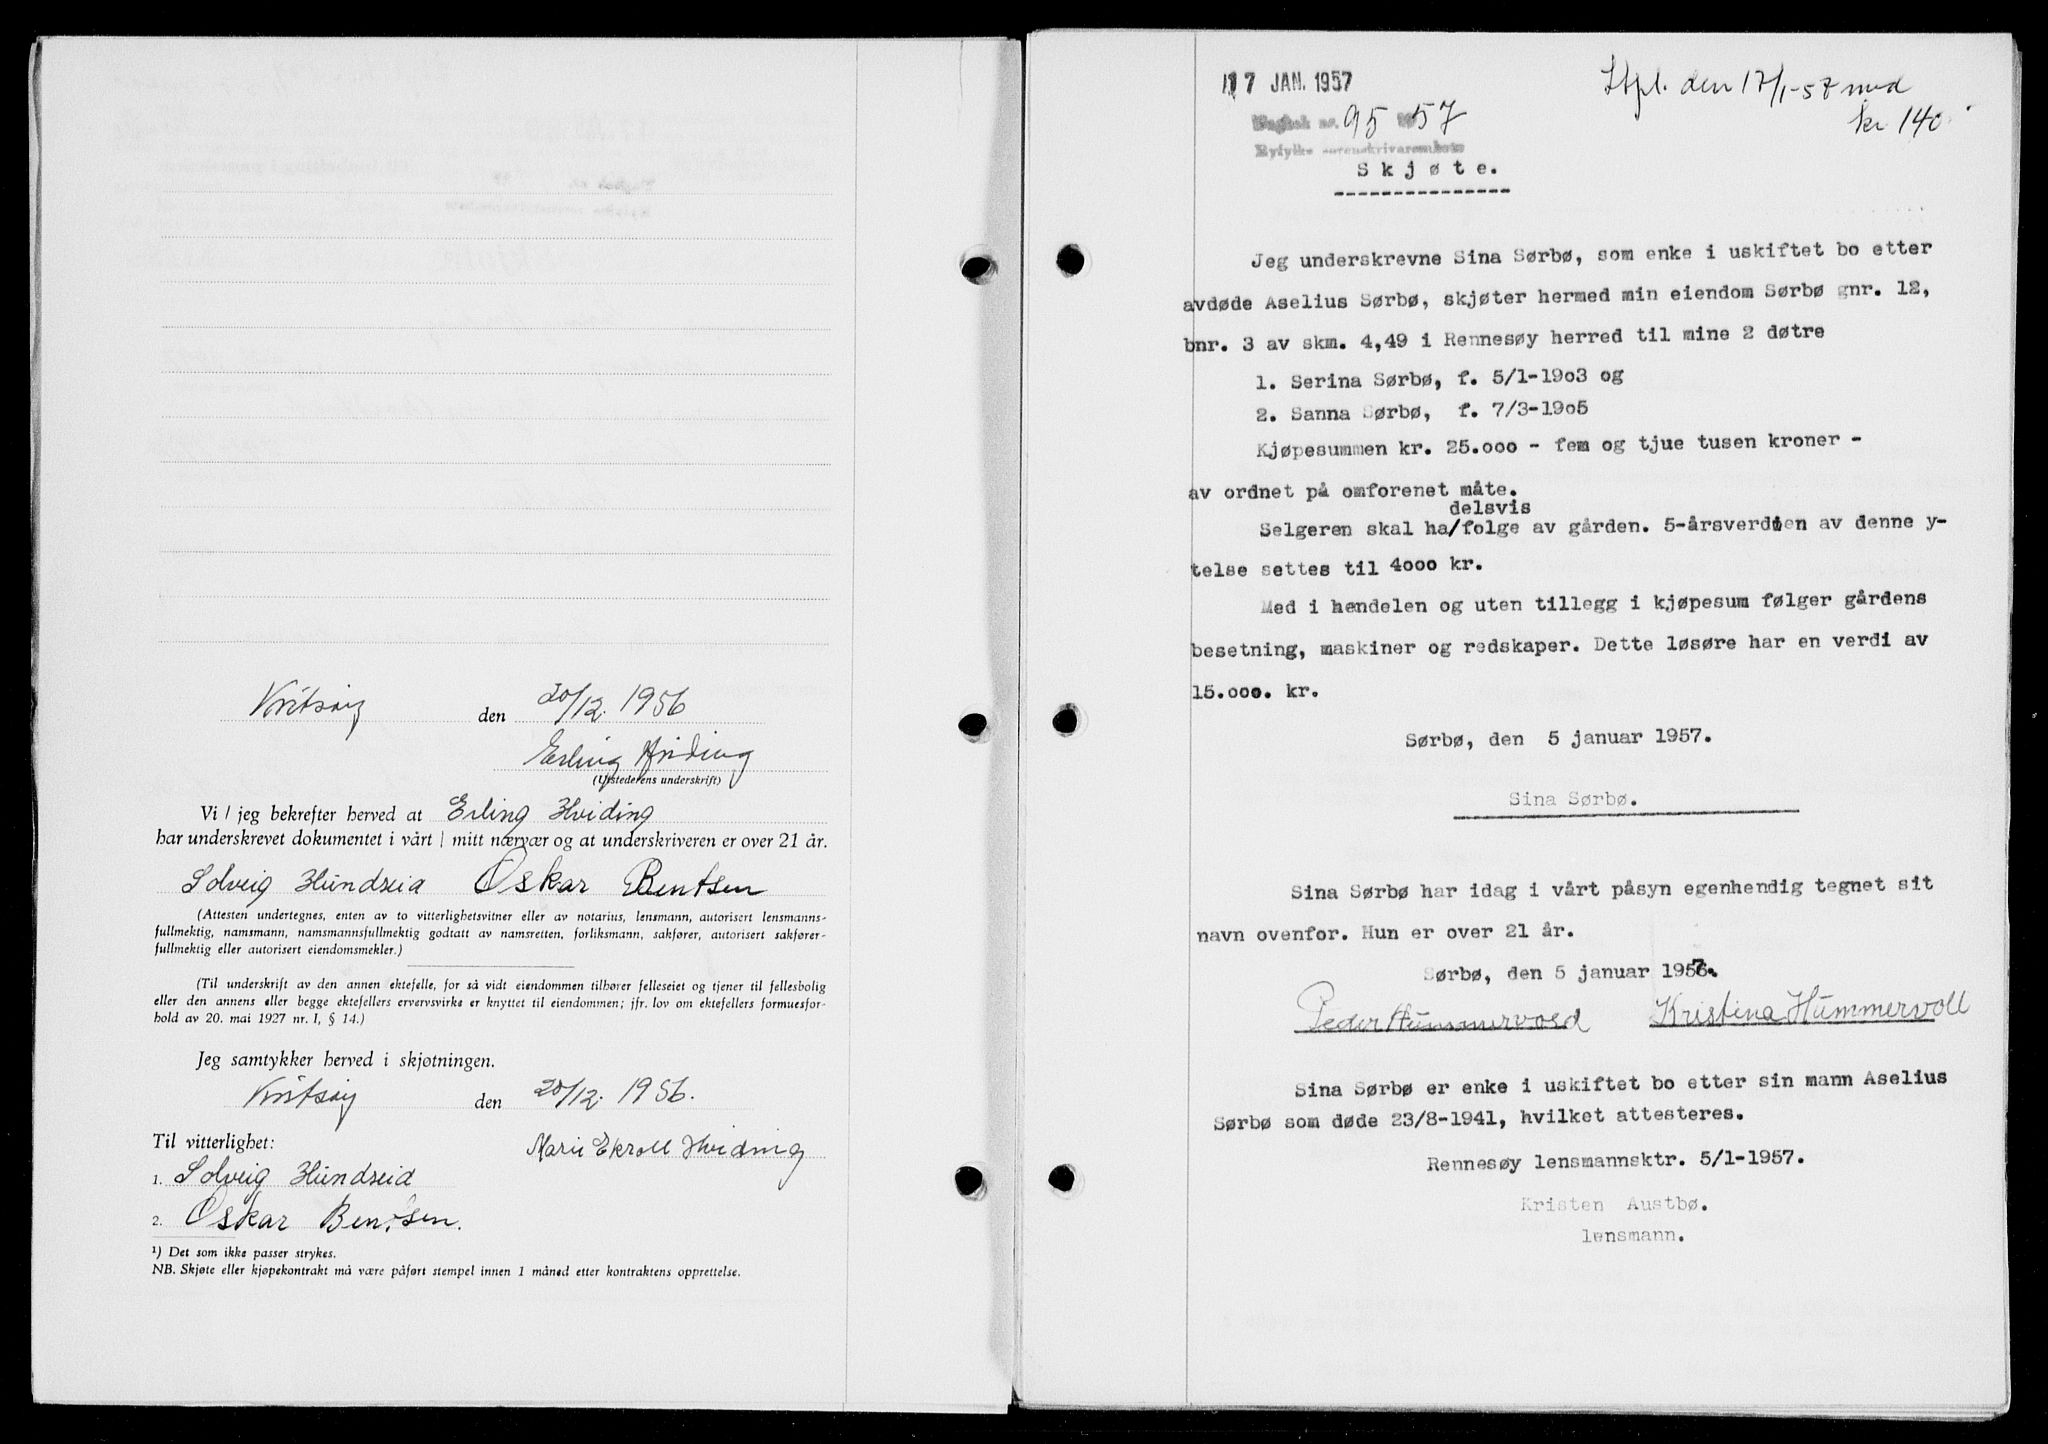 Kvitsøy den 20/12. 1956
Erling Hviding
(Utstederens underskrift)
Vi / jeg bekrefter herved at Erling Hviding
har underskrevet dokumentet i vårt / mitt nærvær og at underskriveren er over 21 år.
Solveig Hundseid Oskar Bentsen
(Attesten undertegnes, enten av to vitterlighetsvitner eller av notarius, lensmann, autorisert lensmanns-
fullmektig, namsmann, namsmannsfullmektig godtatt av namsretten, forliksmann, sakfører, autorisert sakfører-
fullmektig eller autorisert eiendomsmekler.)
(Til underskrift av den annen ektefelle, for så vidt eiendommen tilhører felleseiet og tjener til fellesbolig
eller den annens eller begge ektefellers ervervsvirke er knyttet til eiendommen; jfr. lov om ektefellers formuesfor-
hold av 20. mai 1927 nr. I, § 14.)
Jeg samtykker herved i skjøtningen.
Kvitsøy den 20/12. 1956.
Til vitterlighet:
Marie Ekroll Hviding
1. Solveig Hundseid
2. Oskar Bentsen.
¹) Det som ikke passer strykes.
NB. Skjøte eller kjøpekontrakt må være påført stempel innen 1 måned etter kontraktens opprettelse.
17 JAN. 1957
Stpl. den 17/1-57 med
kr 140
Dagbok nr. 95 1957
Ryfylke sorenskrivarembete
Skjøte.
Jeg underskrevne Sina Sørbø, som enke i uskiftet bo etter
avdøde Aselius Sørbø, skjøter hermed min eiendom Sørbø gnr. 12,
bnr. 3 av skm. 4,49 i Rennesøy herred til mine 2 døtre
1. Serina Sørbø, f. 5/1-1903 og
2. Sanna Sørbø, f. 7/3-1905
Kjøpesummen kr. 25.000 - fem og tjue tusen kroner -
av ordnet på omforenet måte.
delsvis
Selgeren skal ha/folge av gården. 5-årsverdien av denne y-
telse settes til 4000 kr.
Med i handelen og uten tillegg i kjøpesum følger gårdens
besetning, maskiner og redskaper. Dette løsøre har en verdi av
15.000. kr.
Sørbø, den 5 januar 1957.
Sina Sørbø.
Sina Sørbø har idag i vårt påsyn egenhendig tegnet sit
navn ovenfor. Hun er over 21 år.
Sørbø, den 5 januar 1957.
Peder Hummervold Kristina Hummervoll
Sina Sørbø er enke i uskiftet bo etter sin mann Aselius
Sørbø som døde 23/8-1941, hvilket attesteres.
Rennesøy lensmannsktr. 5/1-1957.
Kristen Austbø.
lensmann.